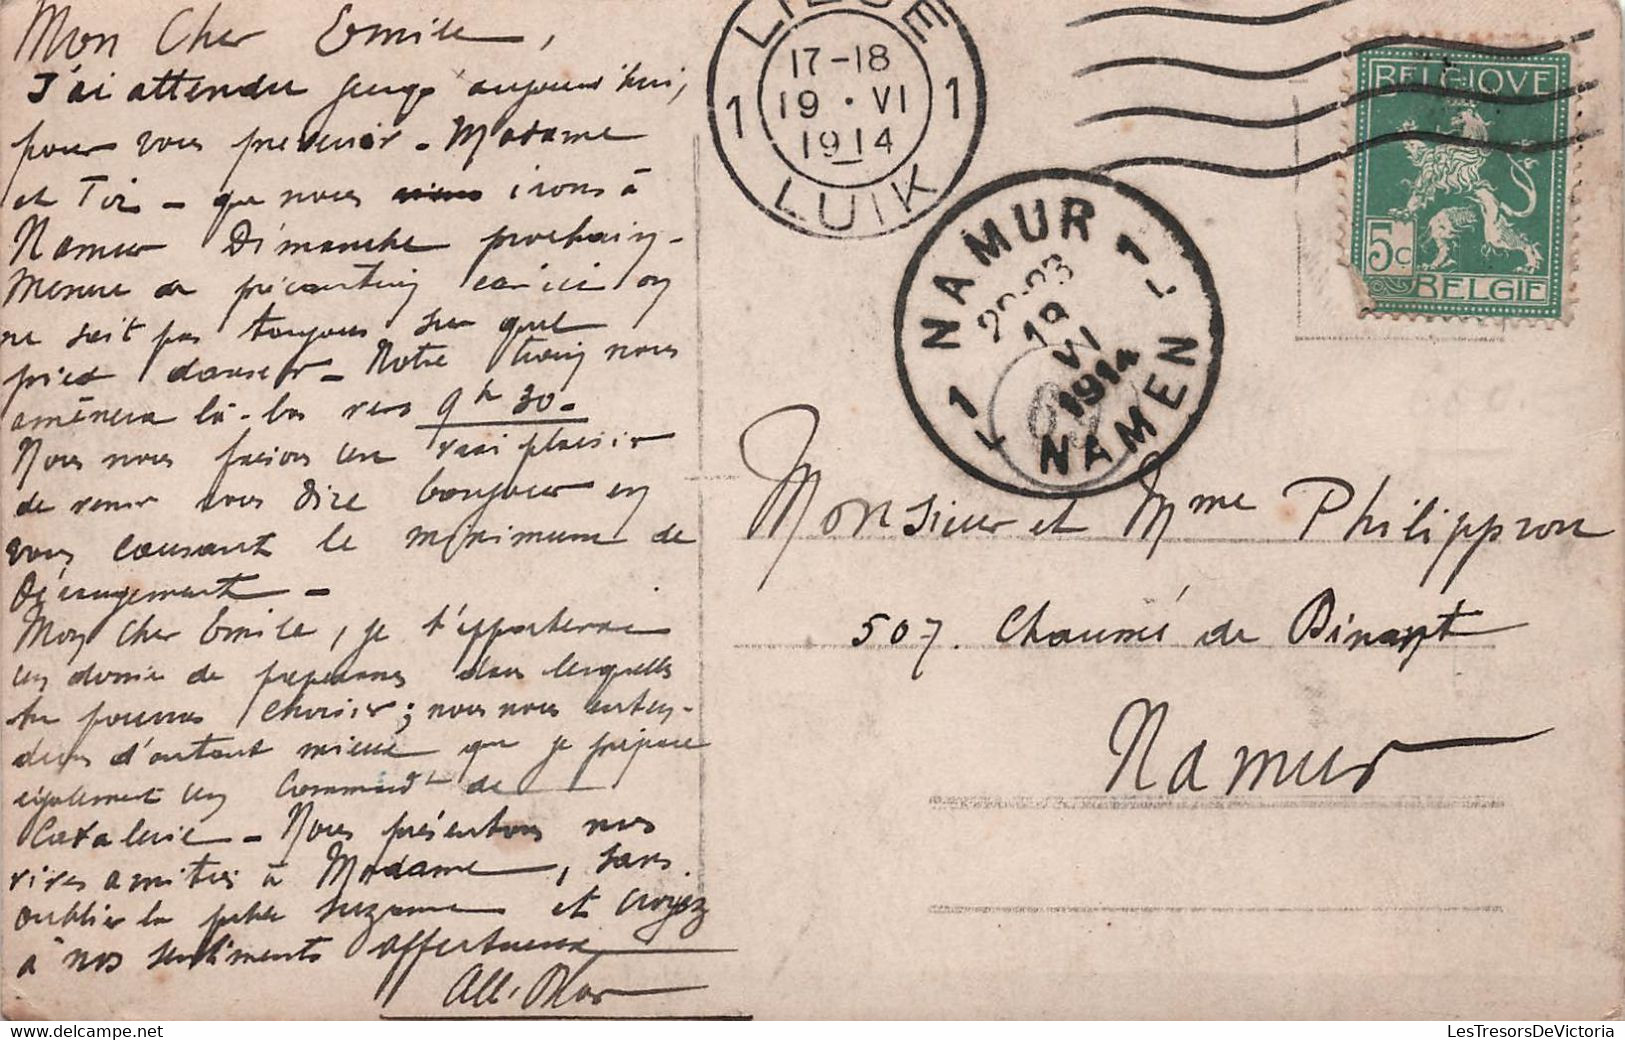 Mon Cher Emile,
J'ai attendu jusqu'aujourd'hui,
pour vous prévenir - Madame
et Toi - que nous irons à
Namur Dimanche prochain -
Mesure de précaution, car ici on
ne sait pas toujours sur quel
pied danser - Notre train nous
amènera là-bas vers 9h 30 -
Nous nous faisons un vrai plaisir
de venir vous dire bonjour en
vous causant le minimum de
dérangement -
Mon Cher Emile, je t'apporterai
un dossier de préparations dans lesquelles
tu pourras choisir; nous nous enten-
drons d'autant mieux que je prépare
également un Commandt de
Cavalerie - Nous présentons nos
vives amitiés à Madame, sans
oublier la petite Suzanne et croyez
à nos sentiments affectueux
LIEGE
17-18
19 · VI
1914
1 1
LUIK
NAMUR
19
VI
1914
1 1
NAMEN
BELGIQUE
5c
BELGIE
Monsieur et Mme Philippron
507. Chaussée de Dinant
Namur
LesTresorsDeVictoria